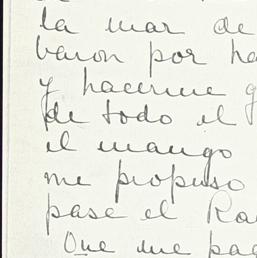 la mar de
varon por ha
y hacerme g
de todo el
el mango
me propuso
pase el Ra
Que me pag